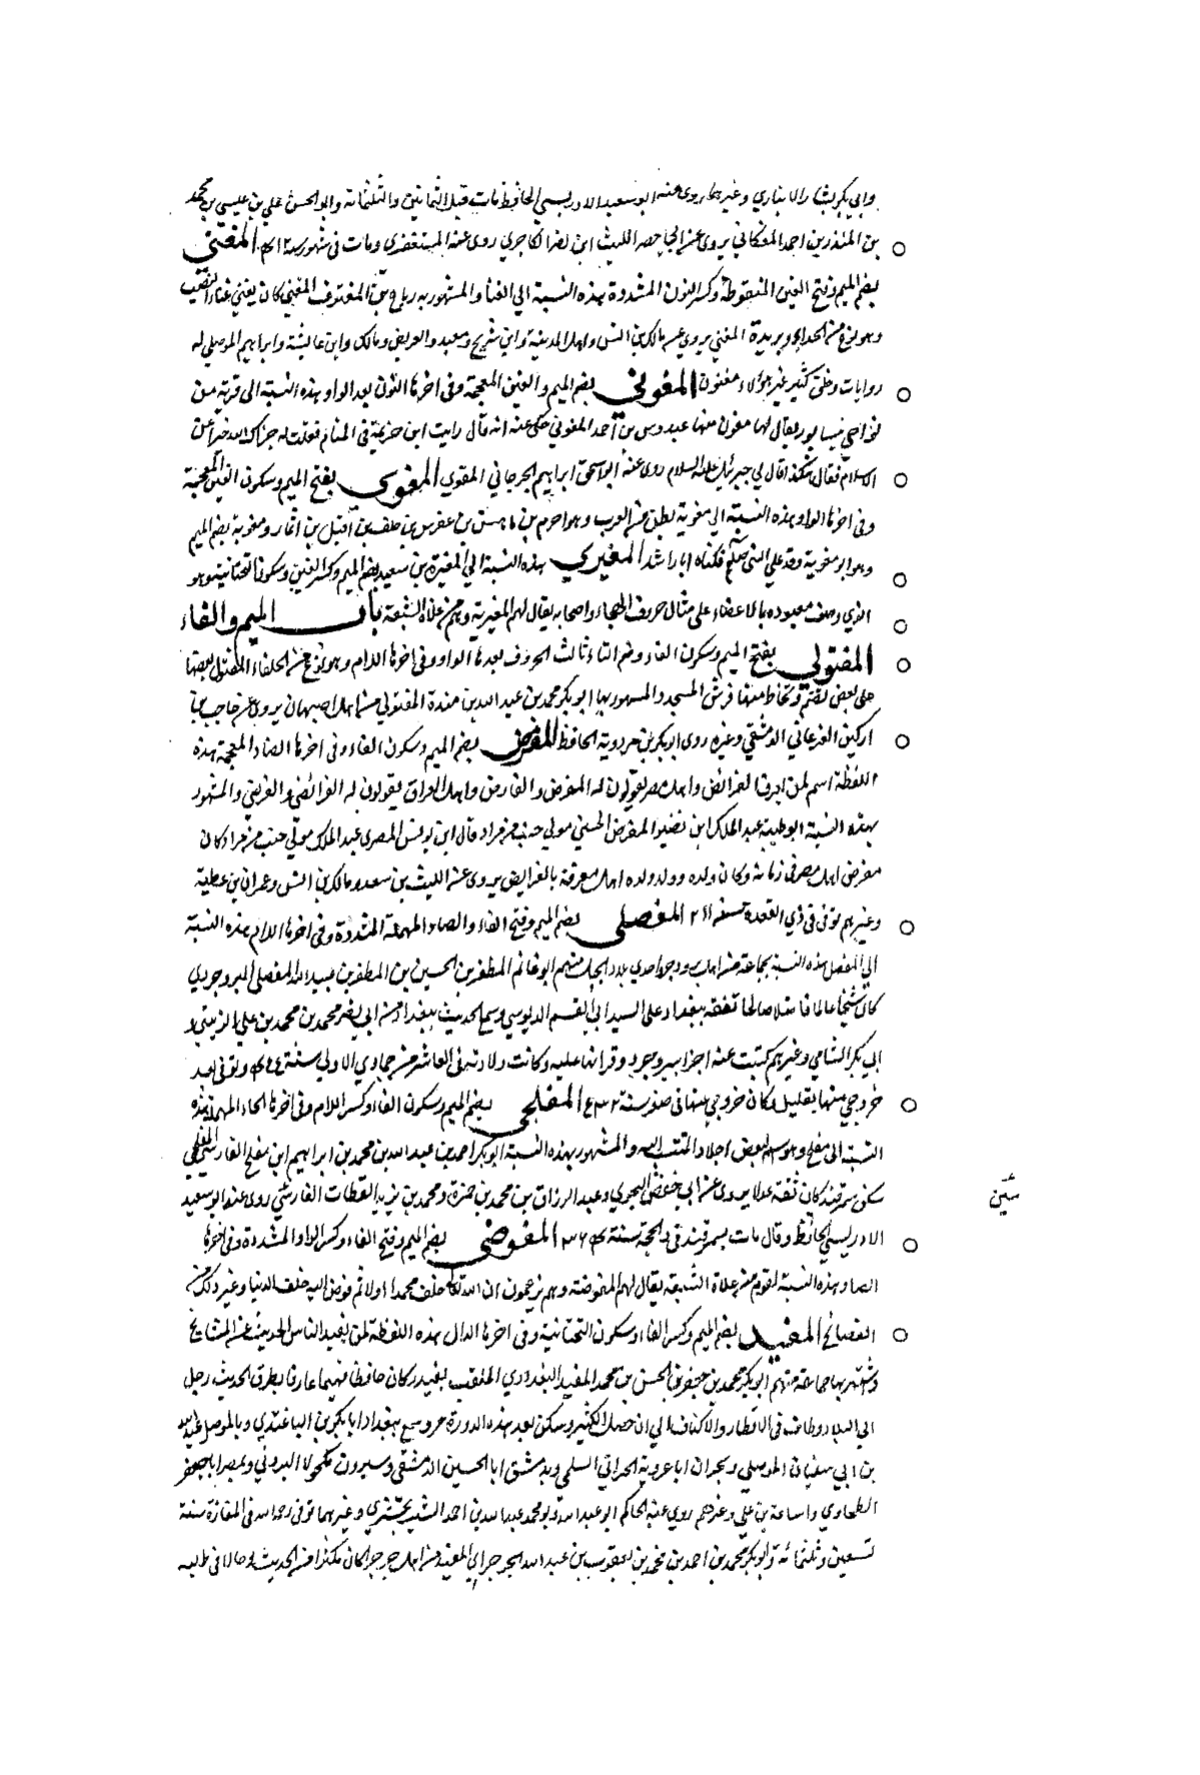 وابي بكر بشار الانباري وغيرهما روى عنه ابو سعيد الادريسي الحافظ مات قبل الثمانين والثلثمائة وابو الحسن علي بن عيسى بن محمد
بن المنذر بن احمد المغكاني يروى عن ابي الليث ابن نصر الكاجري روى عنه المستغفري ومات في شهور سنة المغني
بضم الميم وفتح الغين المنقوطة وكسر النون المشددة هذه النسبة الي الغنا والمشهور به رباح بن المغترف المغني كان يغني غناء النصب
وهو نوع من الحداء وبريدة المغني يروي عن مالك بن انس واهل المدينة وابن سريج ومعبد والعريض ومالك وابن عائشة وابراهيم الموصلي له
روايات وخلق كثير غير هؤلاء مغنون المغوني بضم الميم والغين المعجمة وفي اخرها النون بعد الواو هذه النسبة الى قرية من
نواحي نيسابور يقال لها مغون منها عبدوس بن احمد المغوني حكى عنه انه قال رايت ابن خزيمة في المنام فقلت له جزاك الله خيرا عن
الاسلام فقال هكذا قال لي جبرئيل عليه السلام روى عنه ابو اسحق ابراهيم الجرجاني المقوي المغوي بفتح الميم وسكون الغين المعجمة
وفي اخرها الواو هذه النسبة الي مغوية بطن من العرب وهو اجرم بن ناهس بن عفرس بن خلف بن اقبل بن انمار ومغوية بضم الميم
وهو ابو مغوية وفد علي النبي صلعم فكناه ابا راشد المغيري هذه النسبة الي المغيرة بن سعيد بضم الميم وكسر الغين وسكون التحتانية وهو
الذي وصف معبوده بالاعضاء على مثال حروف الهجاء واصحابه يقال لهم المغيرية وهم من غلاة الشيعة باب الميم والفاء
المفتولي بفتح الميم وسكون الفاء وضم التاء ثالث الحروف بعدها الواو وفي اخرها اللام وهو نوع من الحلفاء المفتول بعضها
على بعض لتضم وتخاط منها فرش المسجد والمشهور بها ابو بكر محمد بن عبد الله بن مندة المفتولي من اهل اصبهان يروى عن حاجب بن
اركين الفرغاني الدمشقي وغيره روى ابو بكر بن مردوية الحافظ المفرض بضم الميم وسكون الفاء وفي اخرها الضاد المعجمة هذه
اللفظة اسم لمن يعرف الفرائض واهل مصر يقولون له المفرض والفارض واهل العراق يقولون له الفرائضي والفرضي والمشهور
بهذه النسبة ابو طيبة عبد الملك ابن نصير المفرض الجنبي مولي جنب من مراد قال ابن يونس المصري عبد الملك مولي جنب من مراد كان
مفرض اهل مصر في زمانه وكان ولده وولد ولده اهل معرفة بالفرايض يروى عن الليث بن سعد ومالك بن انس وعمران بن عطية
وغيرهم توفى في ذي القعدة سنة ٢١١ المفصلي بضم الميم وفتح الفاء والصاد المهملة المشددة وفي اخرها اللام هذه النسبة
الي المفصل هذه النسبة لجماعة من اهل بروجرد احدي بلاد الجبل منهم ابو غانم المظفر بن الحسين بن المظفر بن عبيد الله المفصلي البروجردي
كان شيخا عالما فاضلا صالحا تفقه ببغداد على السيد ابي القسم الدبوسي وسمع الحديث ببغداد من ابي نصر محمد بن محمد بن علي الزينبي و
ابي بكر الشامي وغيرهم كتبت عنه اجزاء ببروجرد وقراتها عليه وكانت ولادته في العاشر من جمادي الاولي سنة وتوفى بعد
خروجي منها بقليل وكان خروجي منها في صفر سنة المفلحي بضم الميم وسكون الفاء وكسر اللام وفي اخرها الحاء المهملة هذه
النسبة الى مفلح وهو اسم لبعض اجداد المنتسب اليه والمشهور بهذه النسبة ابو بكر احمد بن عبد الله بن محمد بن ابراهيم ابن مفلح الفارسي المفلحي
سكن سمرقند كان ثقة عدلا يروى عن ابي حفص البجيري وعبد الرزاق بن محمد بن حمزة ومحمد بن يزيد القطان الفارسي روى عنه ابو سعيد
الادريسي الحافظ وقال مات بسمرقند في ذي الحجة سنة المفوضي بضم الميم وفتح الفاء وكسر الواو المشددة وفي اخرها
الضاد هذه النسبة لقوم من غلاة الشيعة يقال لهم المفوضة وهم يزعمون ان الله تعالى خلف محمدا اولا ثم فوض اليه خلف الدنيا وغير ذلك من
الفضائح المفيد بضم الميم وكسر الفاء وسكون التحتانية وفي اخرها الدال هذه اللفظة لمن يفيد الناس الحديث عن المشايخ
واشتهر بها جماعة منهم ابو بكر محمد بن جعفر بن الحسن بن محمد المفيد البغدادي الملقب بغندر كان حافظا فهيما عارفا بطرق الحديث رحل
الي البلاد وطاف في الاقطار والاكناف الي ان حصل الكثير وسكن بعد هذه الدورة مرو سمع ببغداد ابا بكر بن الباغندي وبالموصل عبد الله
بن ابي سفيان الموصلي وبحران ابا عروبة الحراني السلمي وبدمشق ابا الحسين الدمشقي وببيروت مكحولا البيروتي وبمصر ابا جعفر
الطحاوي واسامة بن علي وغيرهم روي عنه الحاكم ابو عبد الله وابو محمد عبد الله بن احمد وغيرهما توفى رحمه الله في المفازة سنة
تسعين وثلثمائة وابو بكر محمد بن احمد بن محمد بن يعقوب بن عبد الله الجرجرائي المفيد من اهل جرجرايا كان مكثرا من الحديث رحالا في طلبه